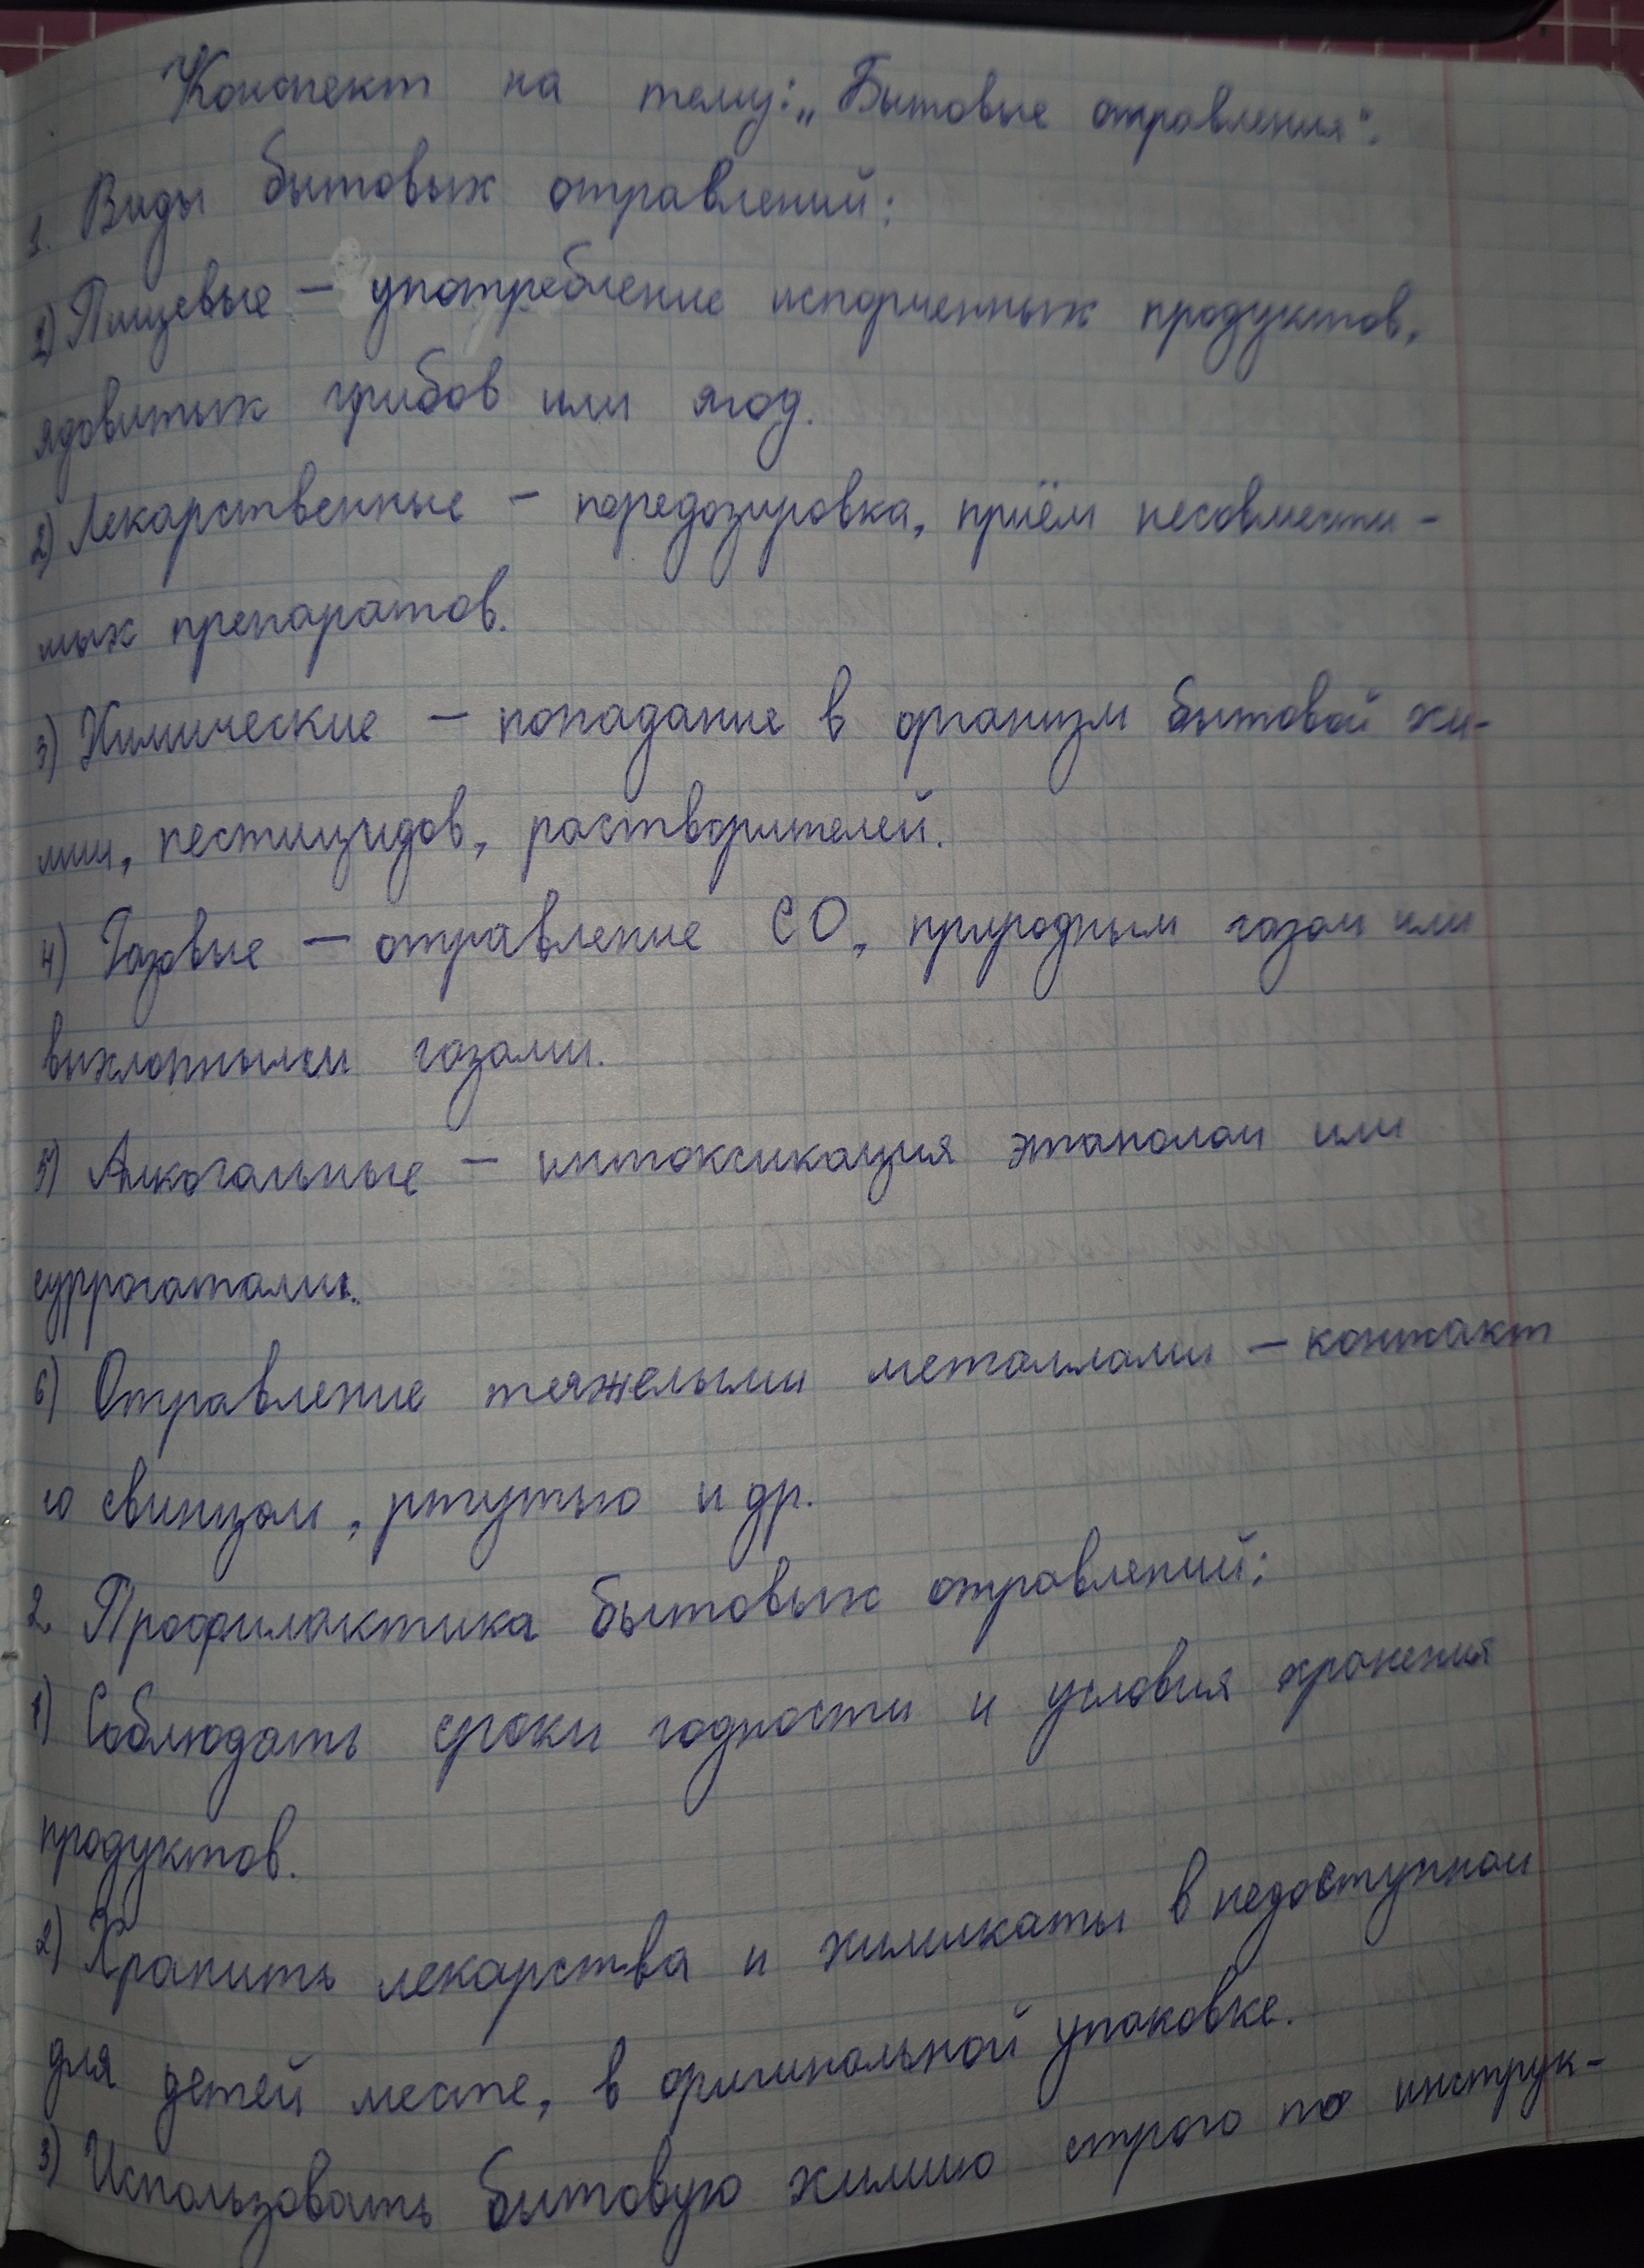 Конспект на тему: „Бытовые отравления".
1. Виды бытовых отравлений:
1) Пищевые – употребление испорченных продуктов,
ядовитых грибов или ягод.
2) Лекарственные – передозировка, приём несовмести-
мых препаратов.
3) Химические – попадание в организм бытовой хи-
мии, пестицидов, растворителей.
4) Газовые – отравление СО, природным газом или
выхлопными газами.
5) Алкогольные – интоксикация этанолом или
суррогатами.
6) Отравление тяжелыми металлами – контакт
со свинцом, ртутью и др.
2. Профилактика бытовых отравлений:
1) Соблюдать сроки годности и условия хранения
продуктов.
2) Хранить лекарства и химикаты в недоступном
для детей месте, в оригинальной упаковке.
3) Использовать бытовую химию строго по инструк-